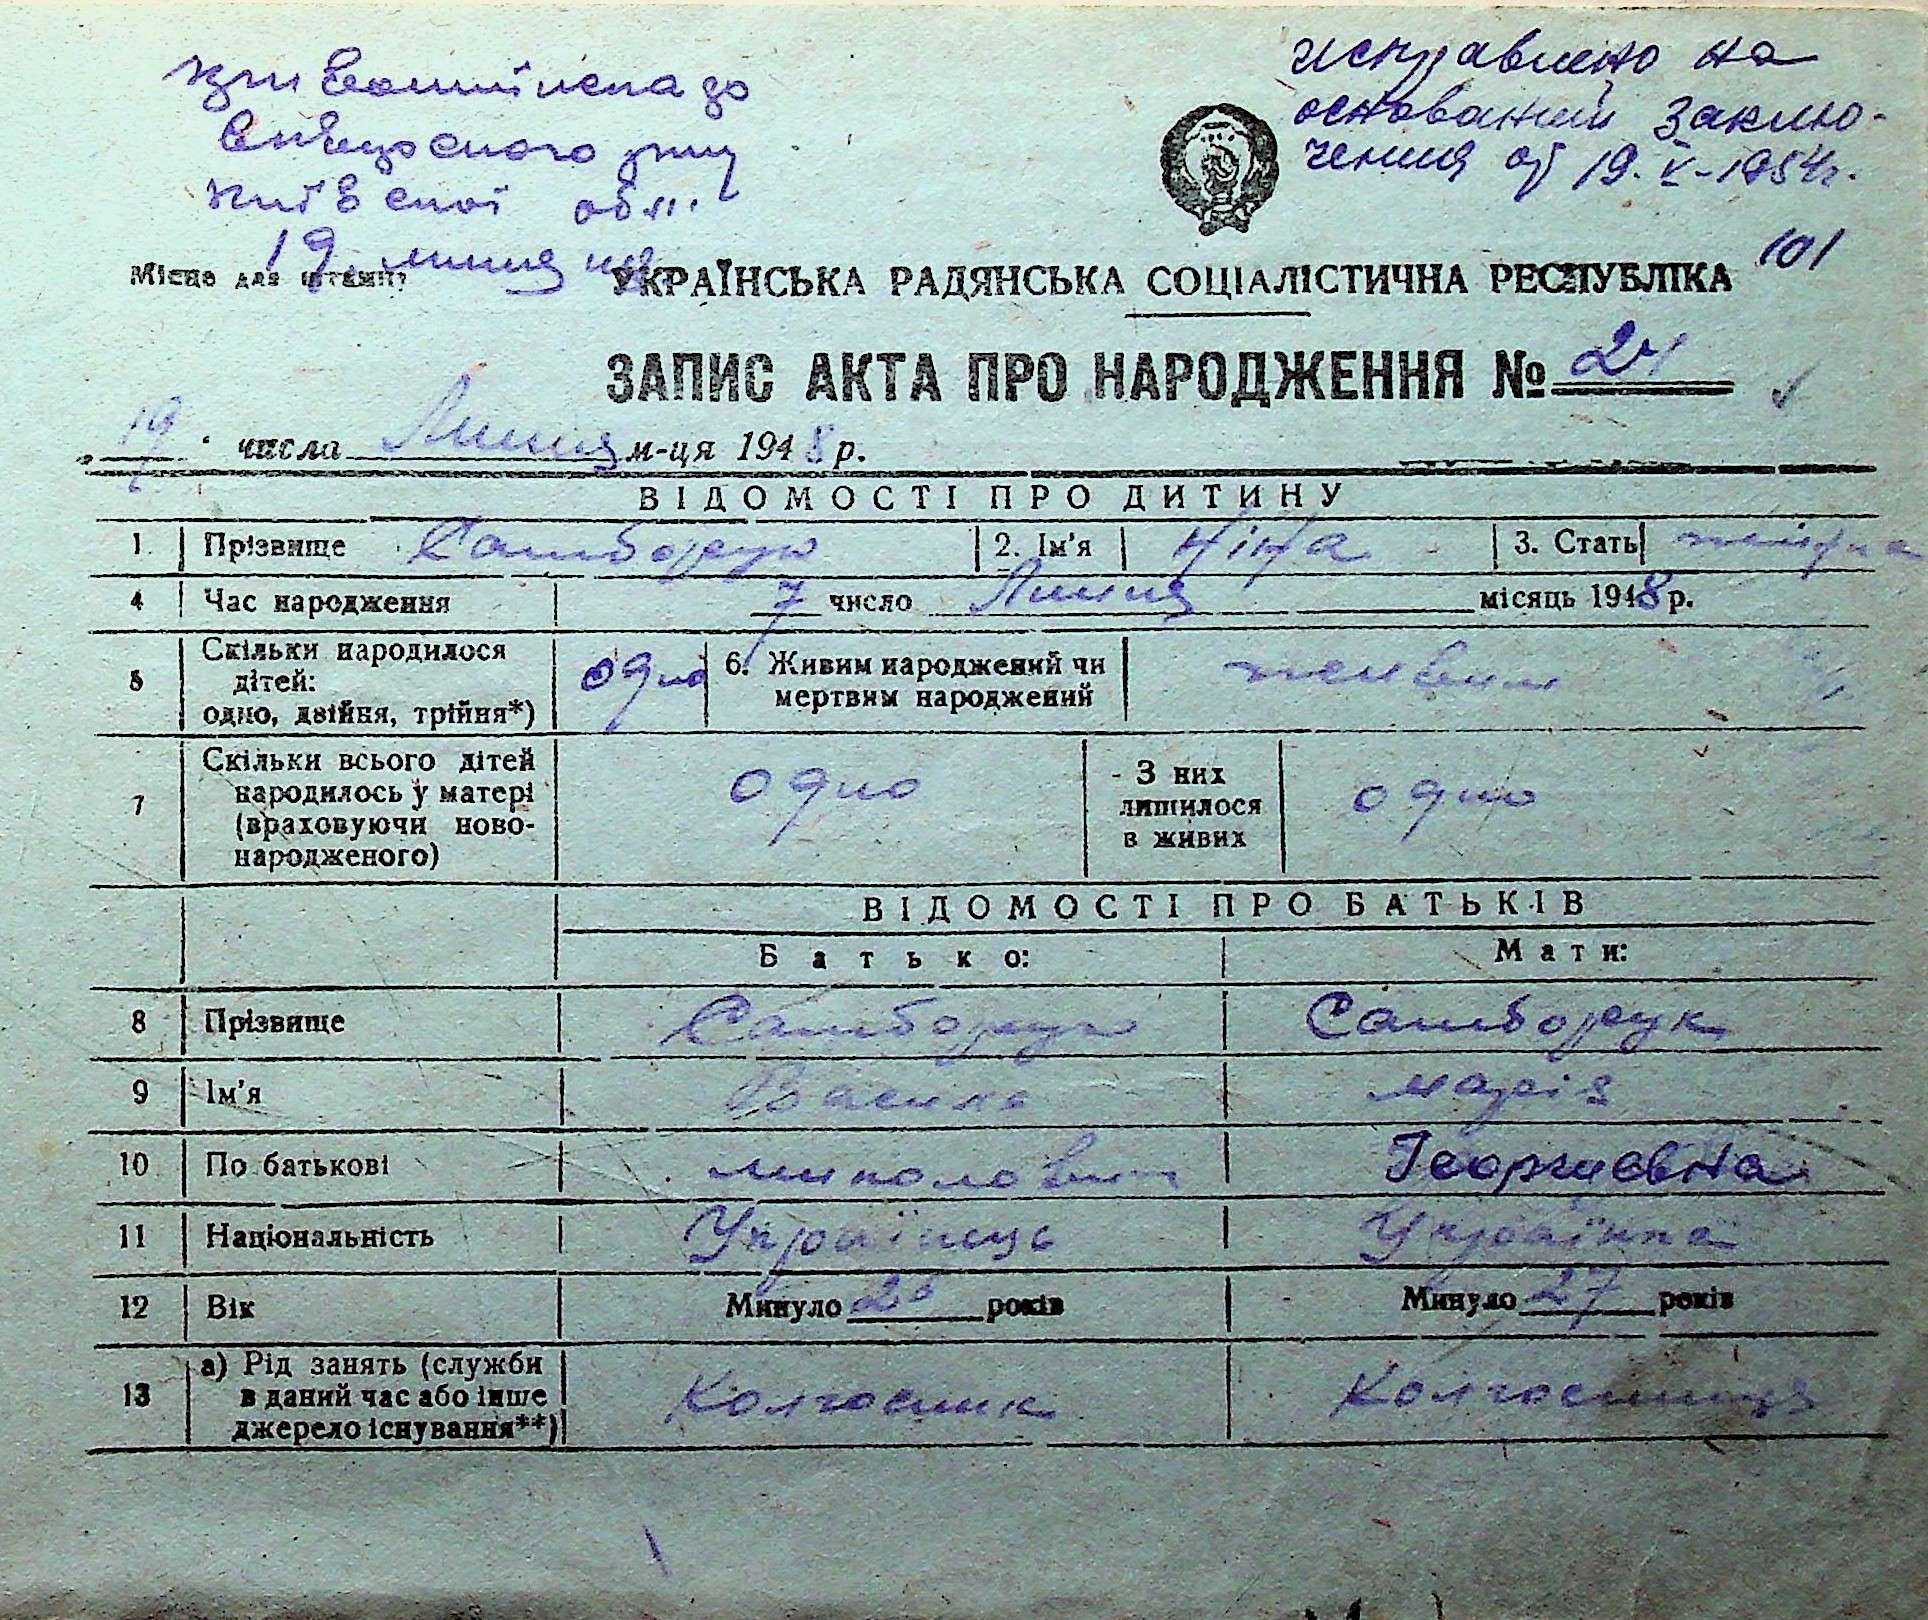 исправлено на
основании заклю-
чения от 19. V-1954г.
Київської обл.
19 липня
101
Місце для штампу
УКРАЇНСЬКА РАДЯНСЬКА СОЦІАЛІСТИЧНА РЕСПУБЛІКА
ЗАПИС АКТА ПРО НАРОДЖЕННЯ № 24
„19" числа Липня м-ця 1948 р.
ВІДОМОСТІ ПРО ДИТИНУ
1 Прізвище Самборук 2. Ім'я Ніна 3. Стать жіноча
4 Час народження 7 число Липня місяць 1948 р.
5 Скільки народилося дітей: одно, двійня, трійня*) одно 6. Живим народжений чи мертвим народжений живим
7 Скільки всього дітей народилось у матері (враховуючи ново-народженого) одно З них лишилося в живих одно
ВІДОМОСТІ ПРО БАТЬКІВ
Батько: Мати:
8 Прізвище Самборук Самборук
9 Ім'я Василь Марія
10 По батькові Миколович Георгиєвна
11 Національність Українець Українка
12 Вік Минуло років Минуло 27 років
13 а) Рід занять (служби в даний час або інше джерело існування**) Колгоспник Колгоспниця